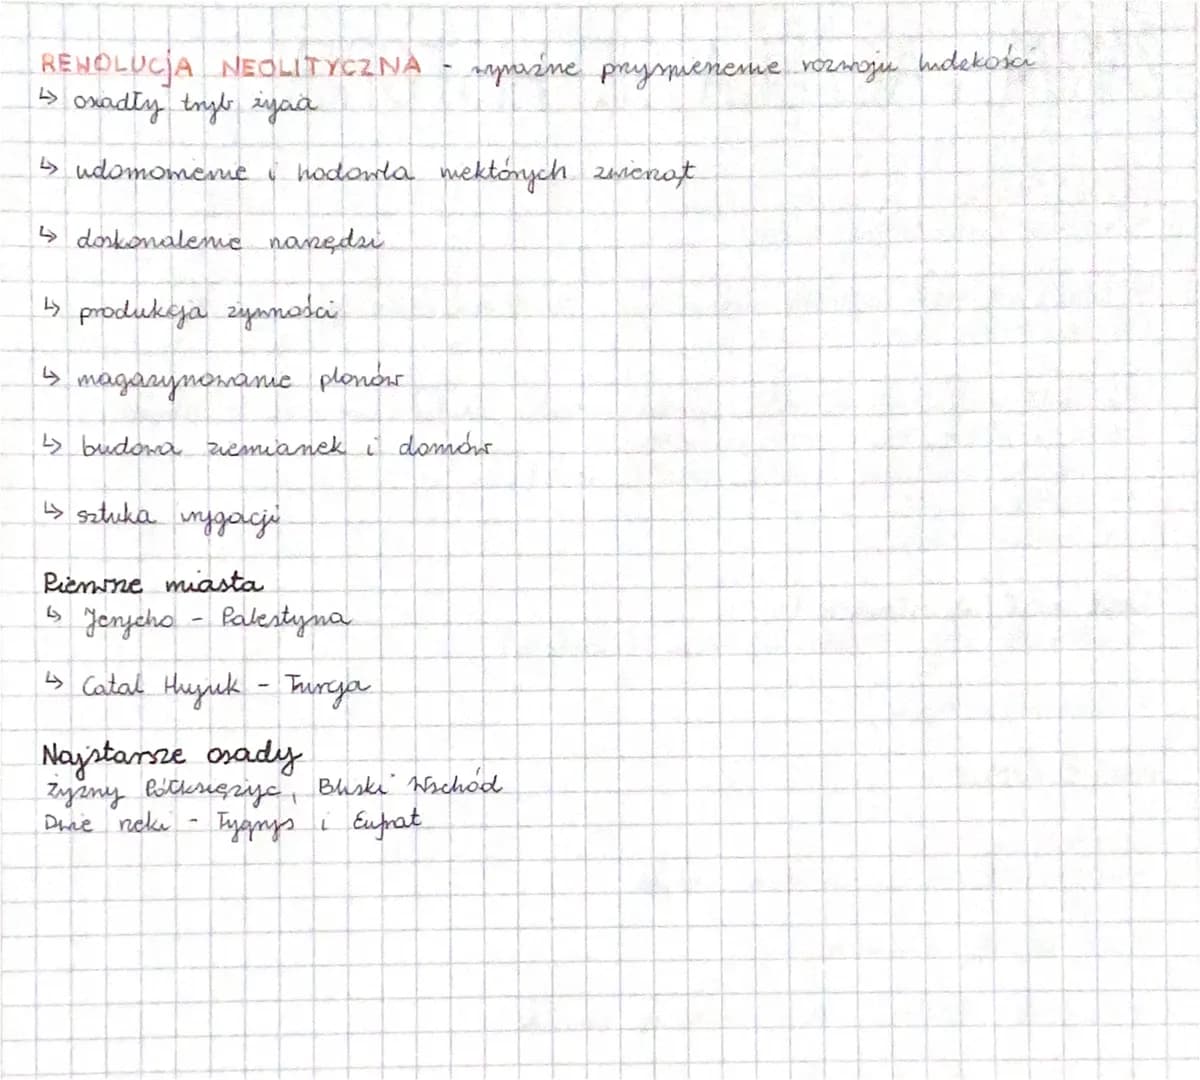 REWOLUCJA NEOLITYCZNA - wyraźne przyspieszenie rozwoju ludzkości
↳ osadły tryb życia
↳ udomowienie i hodowla niektórych zwierząt
↳ doskonalenie narzędzi
↳ produkcja żywności
↳ magazynowanie plonów
↳ budowa ziemianek i domów
↳ sztuka irygacji
Pierwsze miasta
↳ Jerycho - Palestyna
↳ Catal Huyuk - Turcja
Najstarsze osady
Żyzny Półksiężyc, Bliski Wschód
Dwie rzeki - Tygrys i Eufrat